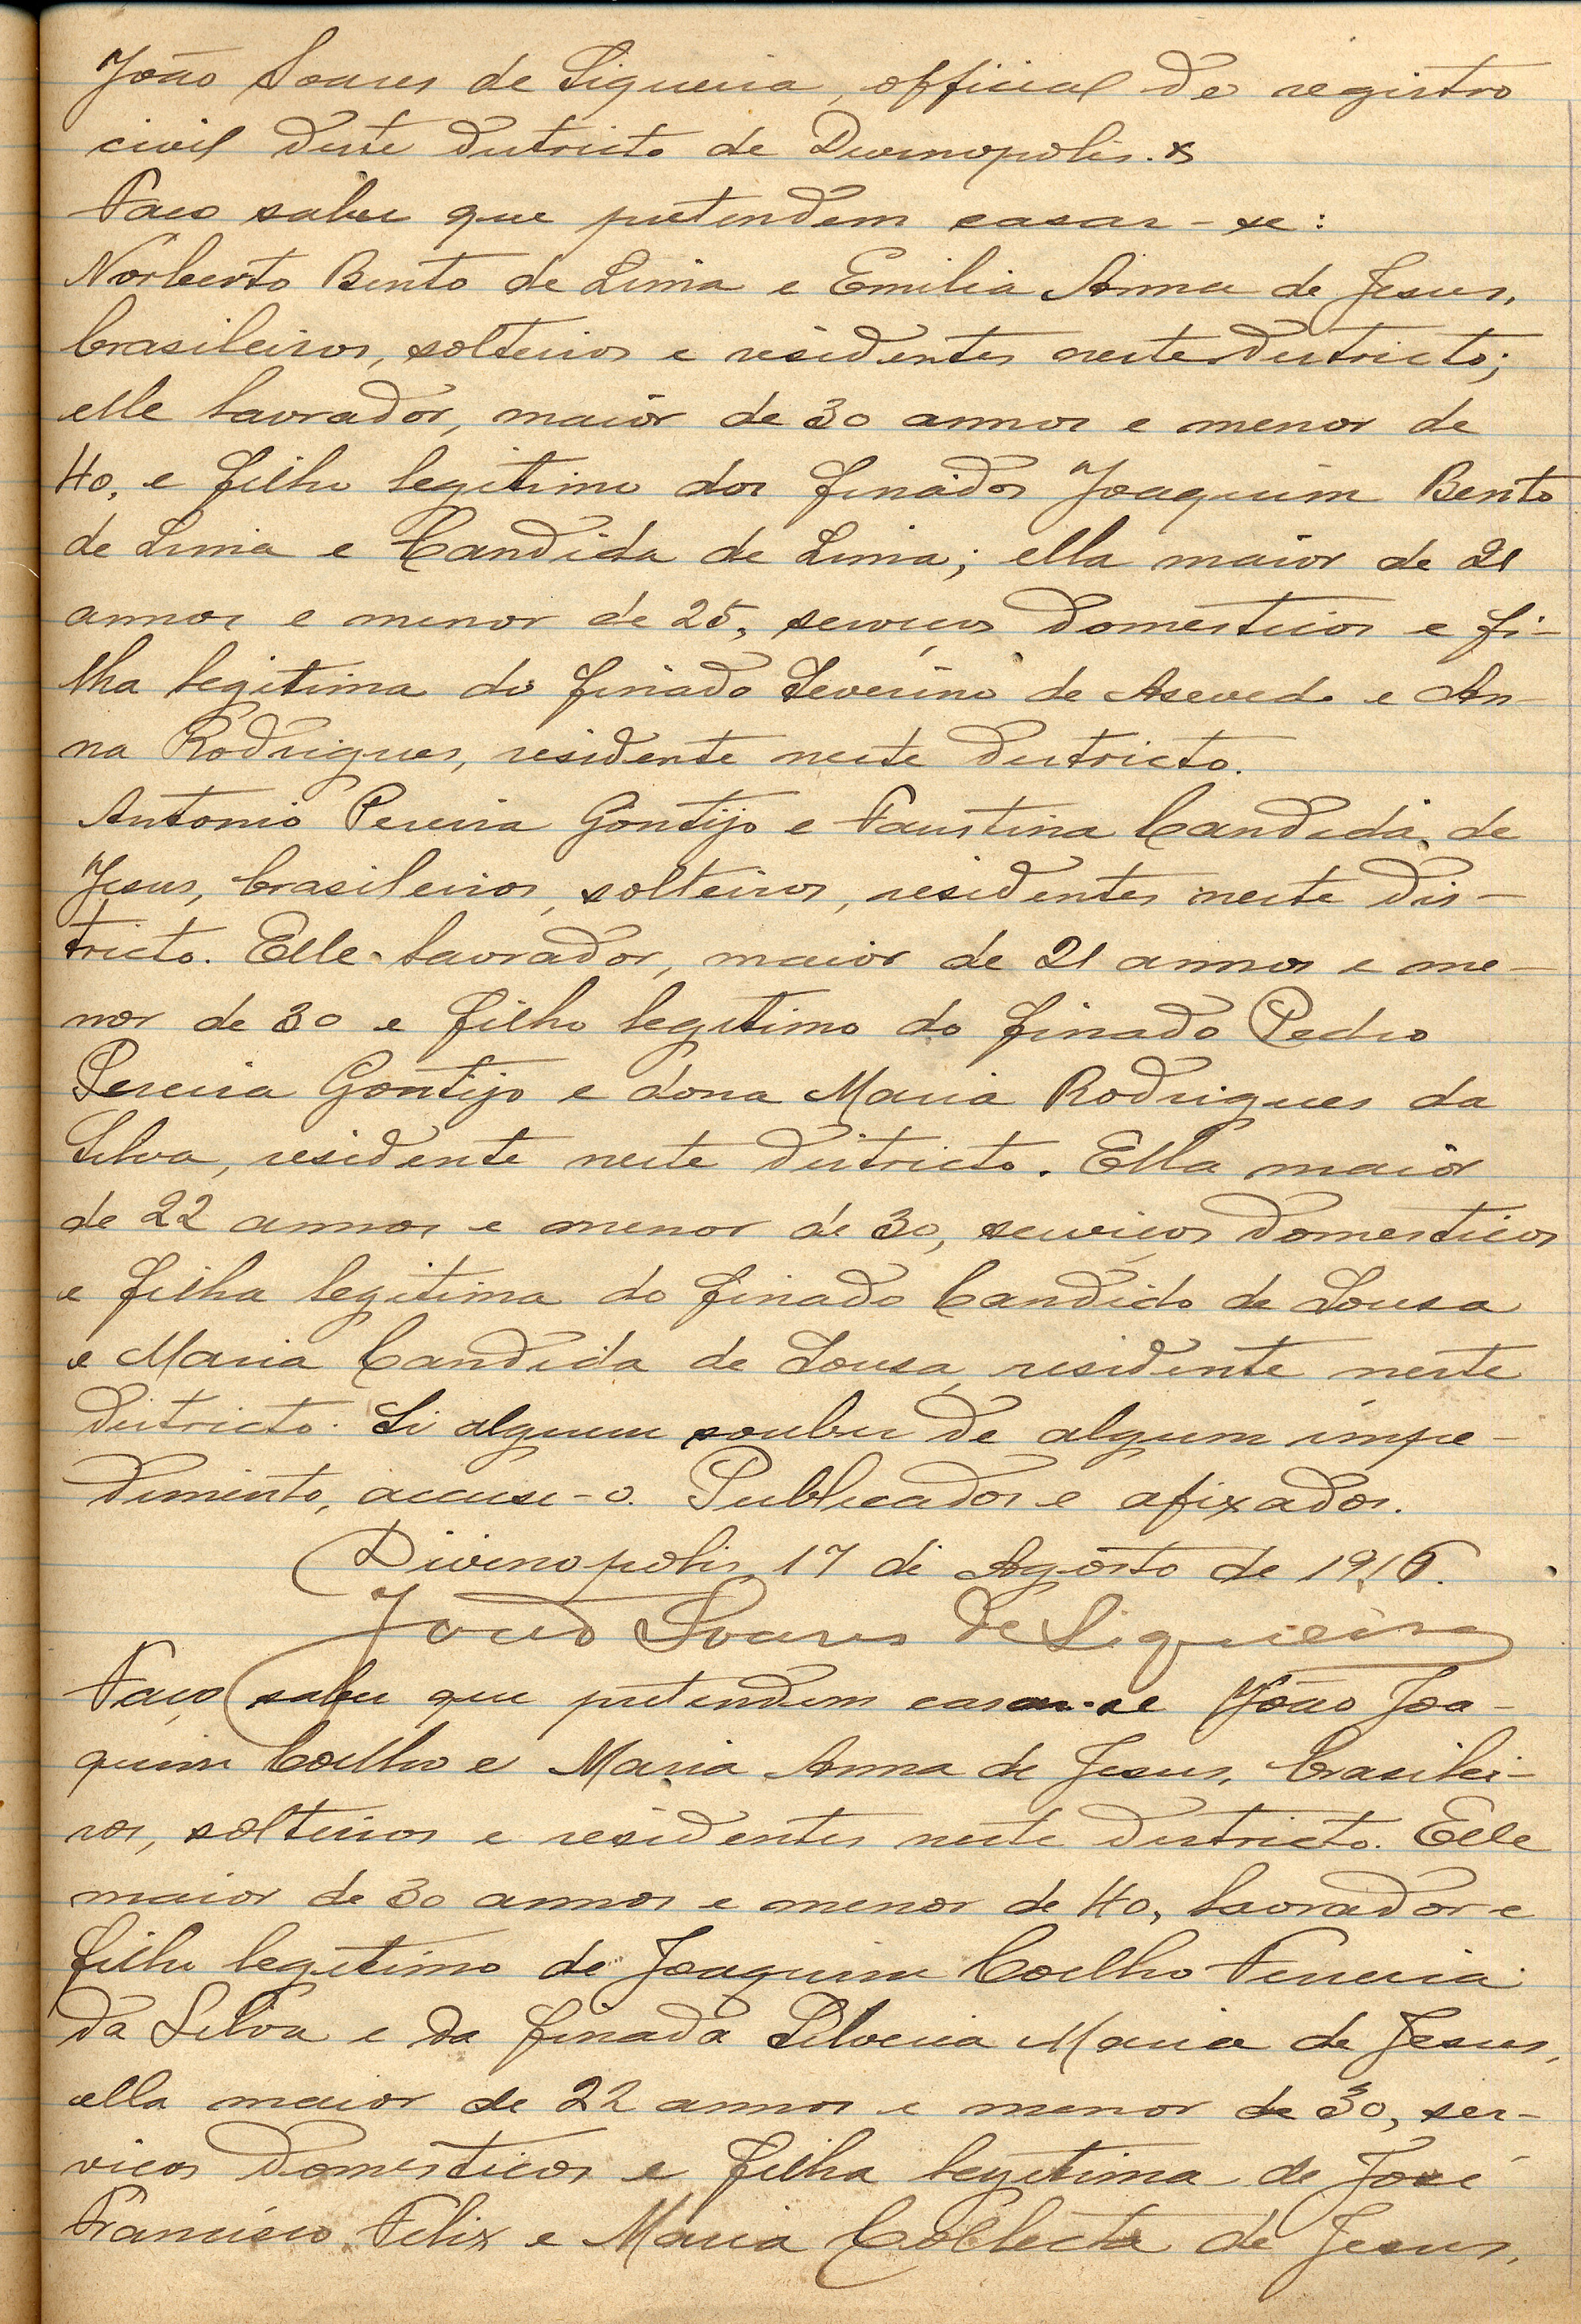 João Soares de Siqueira, official de registro
civil deste districto de Divinopolis.
Faço saber que pretendem casar-se:
Norberto Bento de Lima e Emilia Anna de Jesus,
brasileiros, solteiros e residentes neste districto;
elle lavrador, maior de 30 annos e menor de
40, e filho legitimo dos finados Joaquim Bento
de Lima e Candida de Lima; ella maior de 21
annos e menor de 25, serviços domesticos e fi-
lha legitima do finado Severino de Asevedo e An-
na Rodrigues, residente neste districto.
Antonio Pereira Gontijo e Faustina Candida de
Jesus, brasileiros, solteiros, residentes neste dis-
tricto. Elle lavrador, maior de 21 annos e me-
nor de 30 e filho legitimo do finado Pedro
Pereira Gontijo e dona Maria Rodrigues da
Silva, residente neste districto. Ella maior
de 22 annos e menor de 30, serviços domesticos
e filha legitima do finado Candido de Sousa
e Maria Candida de Sousa, residente neste
districto. Si alguem souber de algum impe-
dimento, accuse-o. Publicados e afixados.
Divinopolis, 17 de Agosto de 1916.
João Soares de Siqueira
Faço saber que pretendem casar-se João Joa-
quim Coelho e Maria Anna de Jesus, brasilei-
ros, solteiros e residentes neste districto. Elle
maior de 30 annos e menor de 40, lavrador e
filho legitimo de Joaquim Coelho Ferreira
da Silva e da finada Silveria Maria de Jesus,
ella maior de 22 annos e menor de 30, ser-
viços domesticos e filha legitima de José
Francisco Felix e Maria Collecta de Jesus,